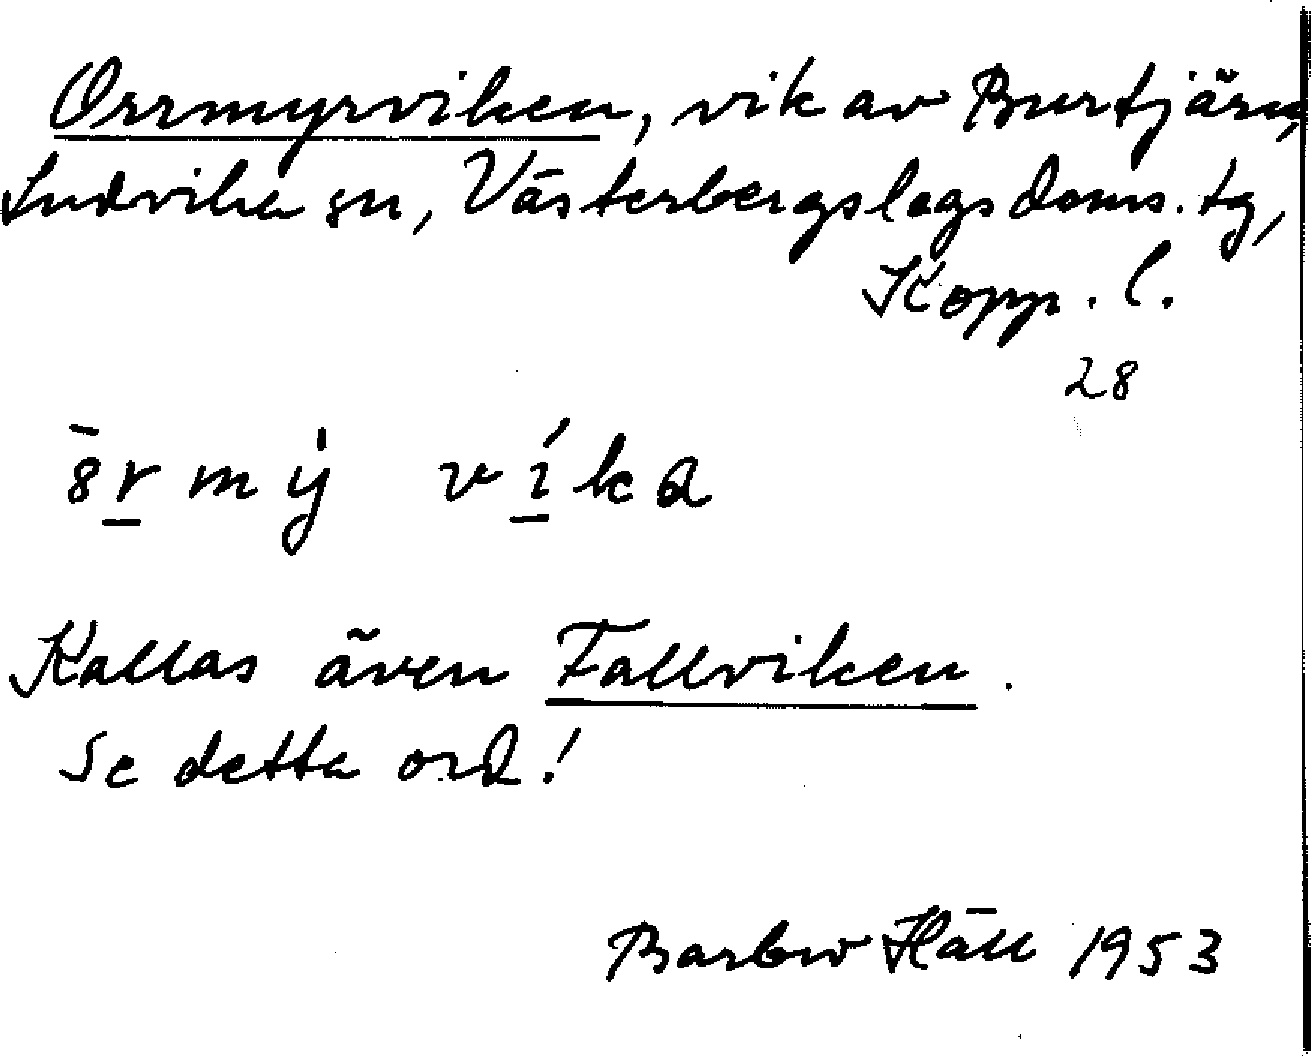 Orrmyrviken, vik av Burtjärn,
Ludvika sn, Västerbergslags doms. tg,
Kopp. l.
28
Kallas även Fallviken.
Se detta ord!
Barbro Häll 1953